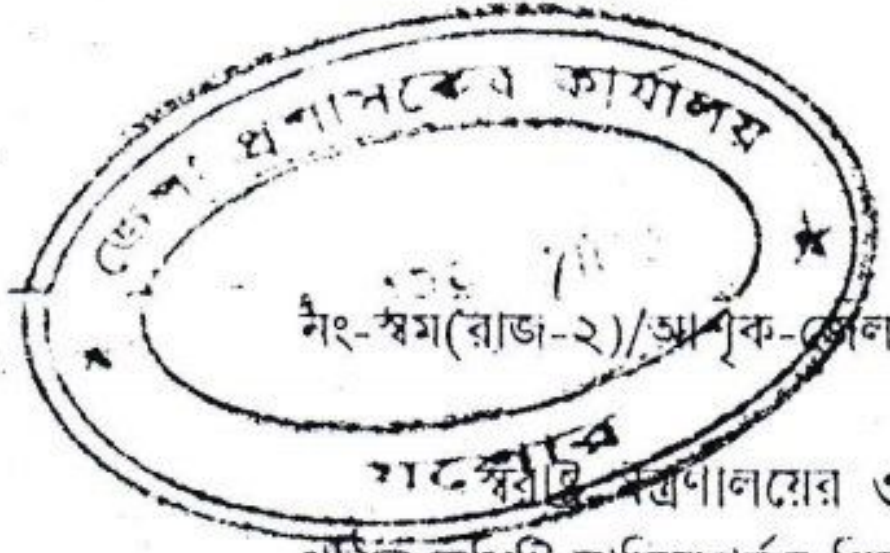 জেলা প্রশাসকের কার্যালয়
নং-স্বম(রাজ-২)/আশৃক-জেল
যশোর
স্বরাষ্ট্র মন্ত্রণালয়ের